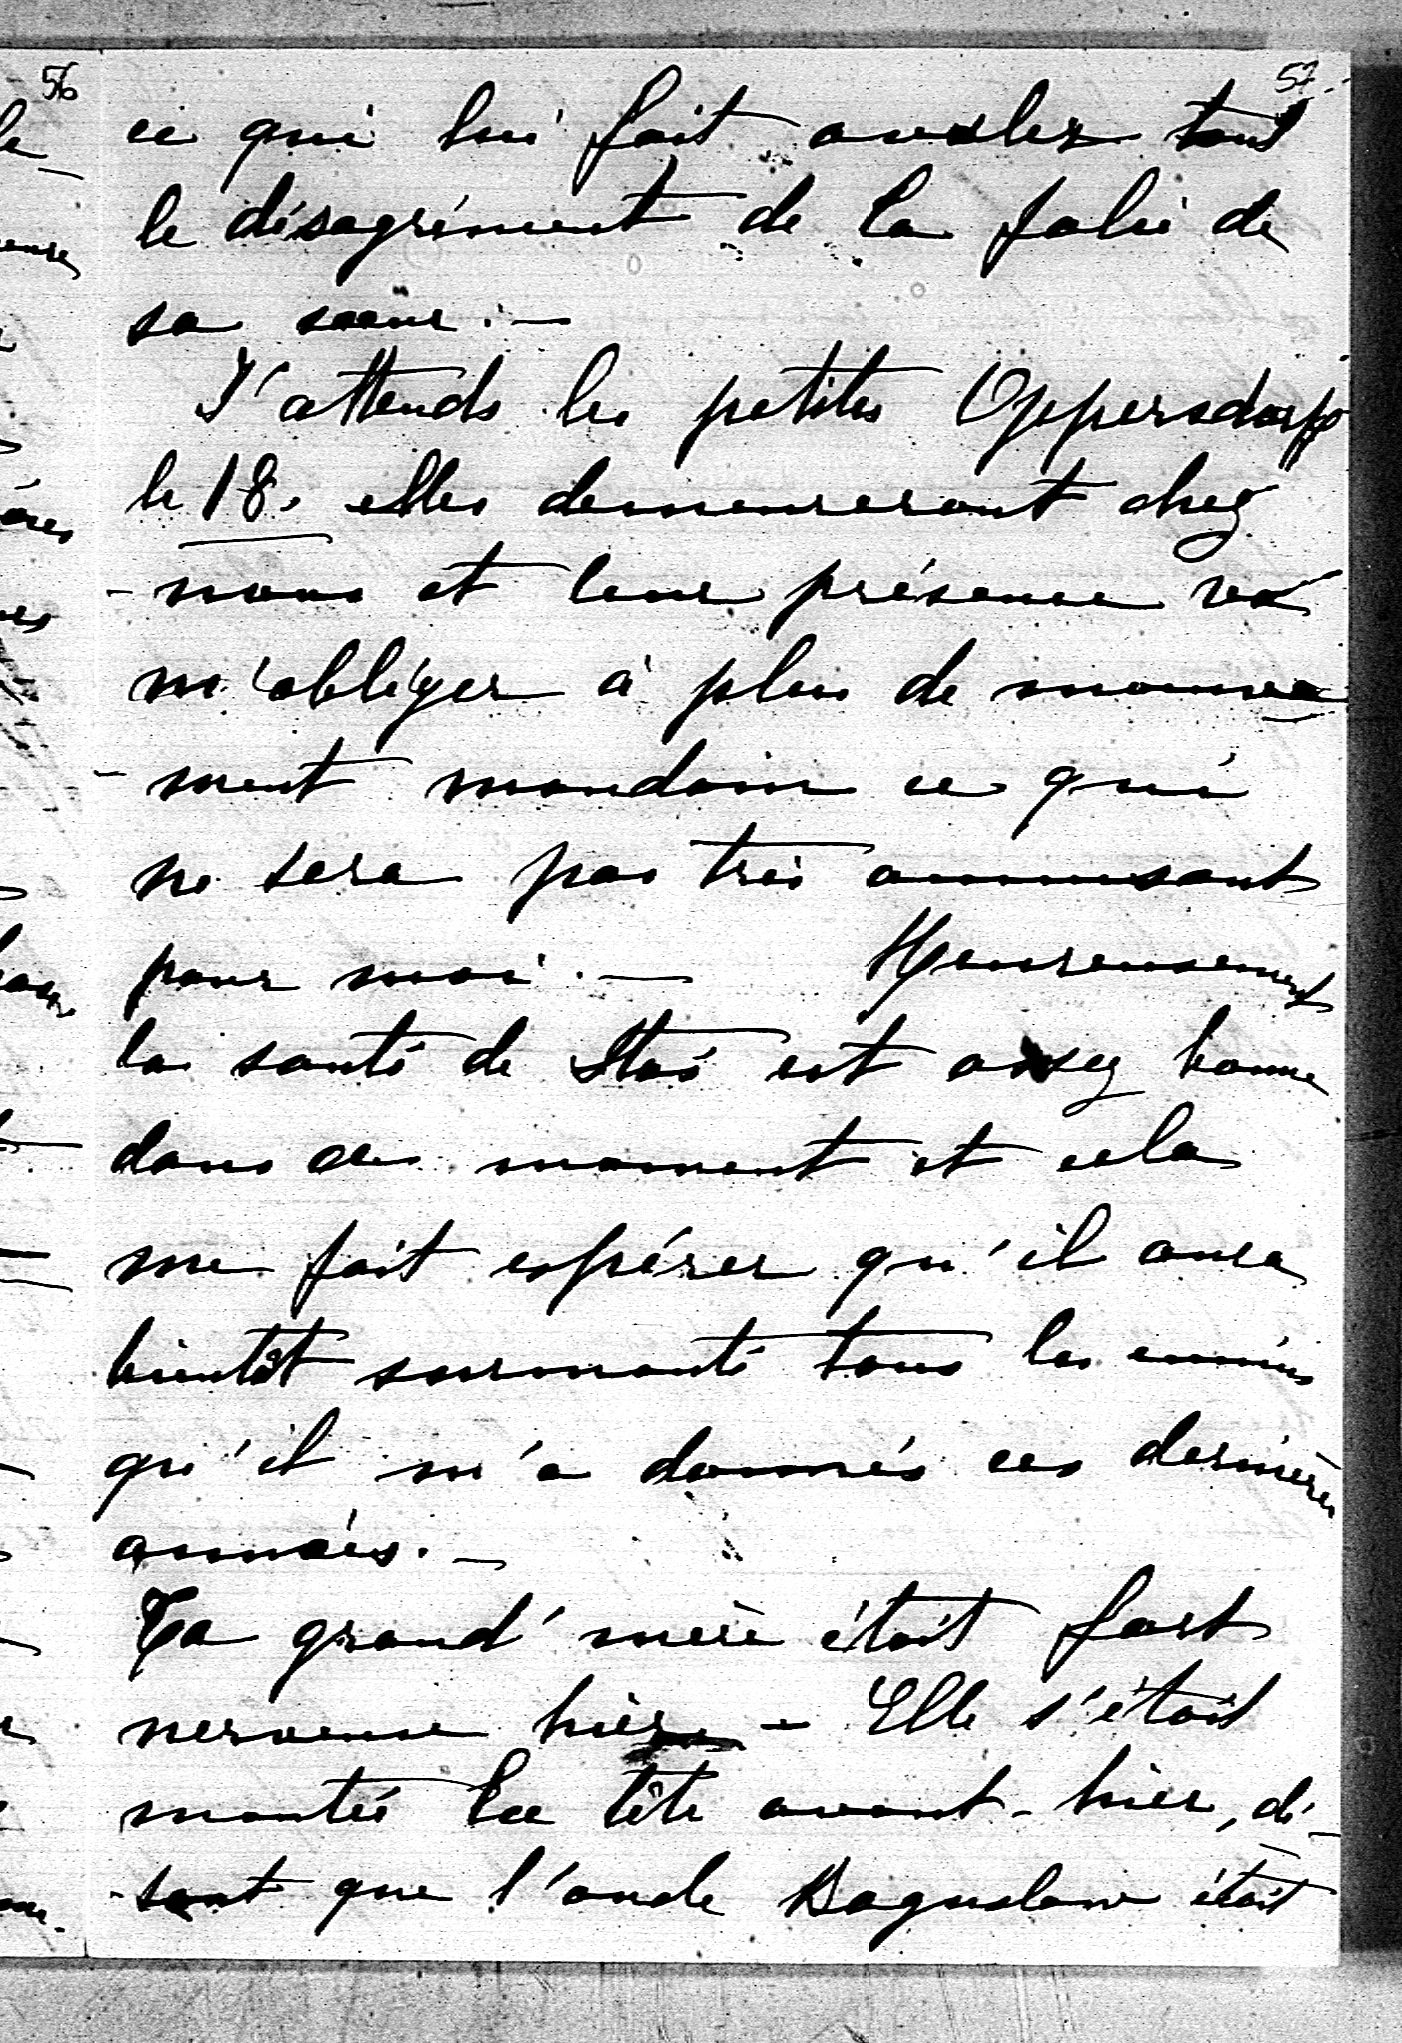 56
57.
ce qui lui fait avaler tout
le désagrément de la folie de
sa soeur. —
J'attends les petites Oppersdorff
le 18. elles demeureront chez
- nous et leur présence va
m'obliger à plus de mouve
- ment mondain ce qui
ne sera pas très amusant
pour moi. — Heureusement
la santé de Stas est assez bonne
dans ce moment et cela
me fait espérer qu'il aura
bientôt surmonté tous les ennuis
qu'il m'a donnés ces dernières
années. —
Ta grand'mère était fort
nerveuse hier - Elle s'était
montée la tête avant-hier, di-
- sant que l'oncle Boguslaw était